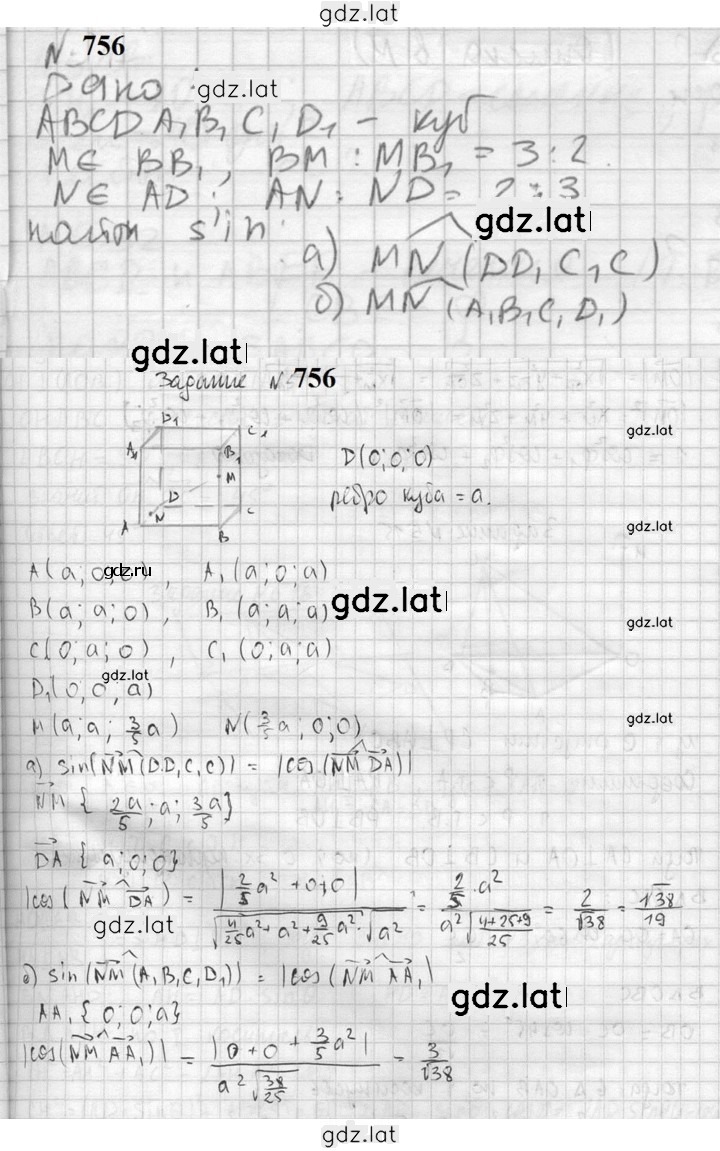 gdz.lat
№ 756
Дано gdz.lat
ABCDA₁B₁C₁D₁ - куб
M∈ BB₁, BM : MB₁ = 3:2.
N∈ AD; AN : ND = 2:3
найти sin: gdz.lat
а) MN^(DD₁C₁C)
б) MN^(A₁B₁C₁D₁)
gdz.lat
Задание № 756
D₁ C₁
A₁ B₁
M
D N C
A B
gdz.lat
D(0;0;0)
ребро куба = a.
gdz.lat
A(a; 0; 0), A₁(a; 0; a)
gdz.ru
B(a; a; 0), B₁(a; a; a)
gdz.lat
C(0; a; 0), C₁(0; a; a)
gdz.lat
gdz.lat
D₁(0; 0; a)
M(a; a; 3/5 a) N(3/5 a; 0; 0)
gdz.lat
а) sin(NM^(DD₁C₁C)) = |cos(NM^DA)|
NM { 2a/5; a; 3a/5}
DA { a; 0; 0}
|cos(NM^DA) = |2/5 a² + 0 + 0| / √(4/25 a² + a² + 9/25 a²) · √a² = 2/5 · a² / a² √((4+25+9)/25) = 2/√38 = √38/19
gdz.lat
б) sin(NM^(A₁B₁C₁D₁)) = |cos(NM^AA₁|
AA₁ { 0; 0; a}
gdz.lat
|cos(NM^AA₁)| = |0 + 0 + 3/5 a²| / a² √(38/25) = 3/√38
gdz.lat